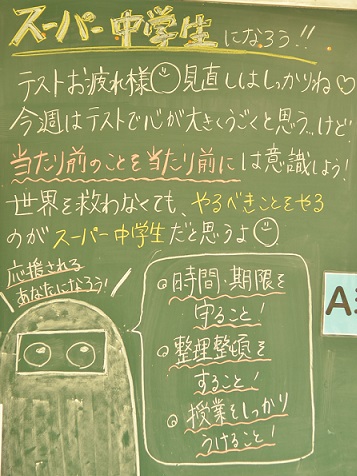 スーパー中学生になろう!!
テストお疲れ様☺見直しはしっかりね♡
今週はテストで心が大きくうごくと思う…けど!
当たり前のことを当たり前には意識しよう!
世界を救わなくても、やるべきことをやる
のがスーパー中学生だと思うよ☺
応援される
あなたになろう!
◎時間・期限を
守ること!
◎整理整頓を
すること!
◎授業をしっかり
うけること!
A